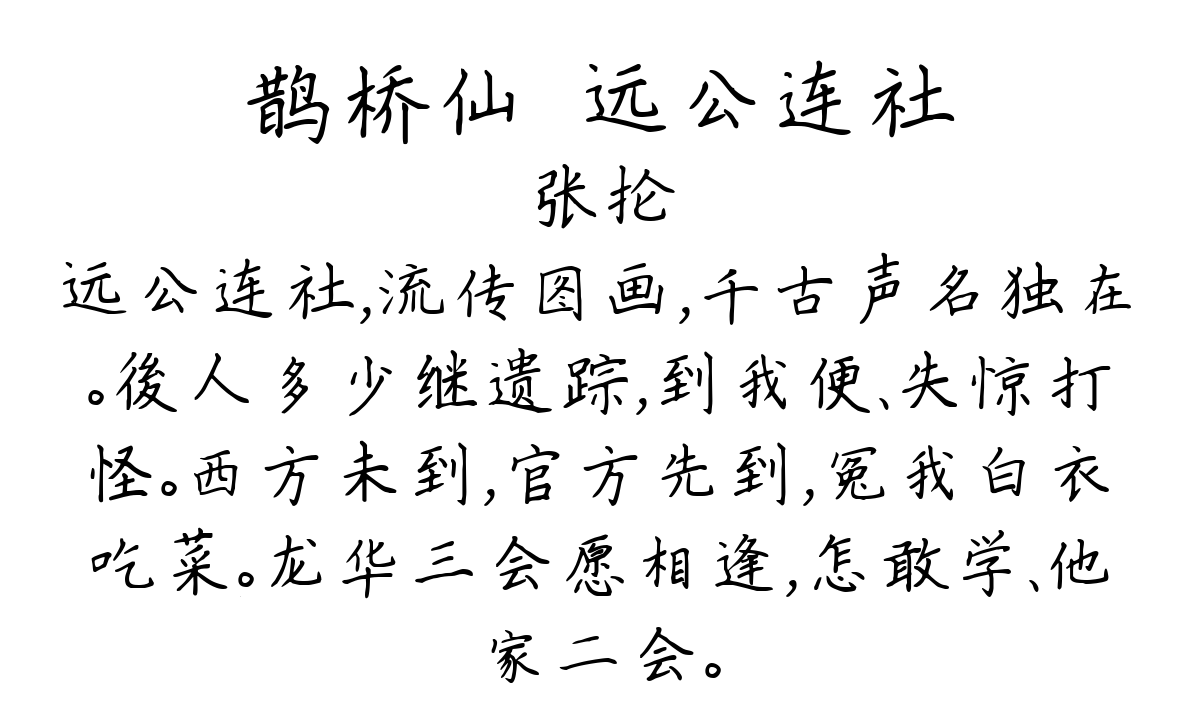 鹊桥仙 远公连社
张抡
远公连社,流传图画,千古声名独在
。後人多少继遗踪,到我便、失惊打
怪。西方未到,官方先到,冤我白衣
吃菜。龙华三会愿相逢,怎敢学、他
家二会。